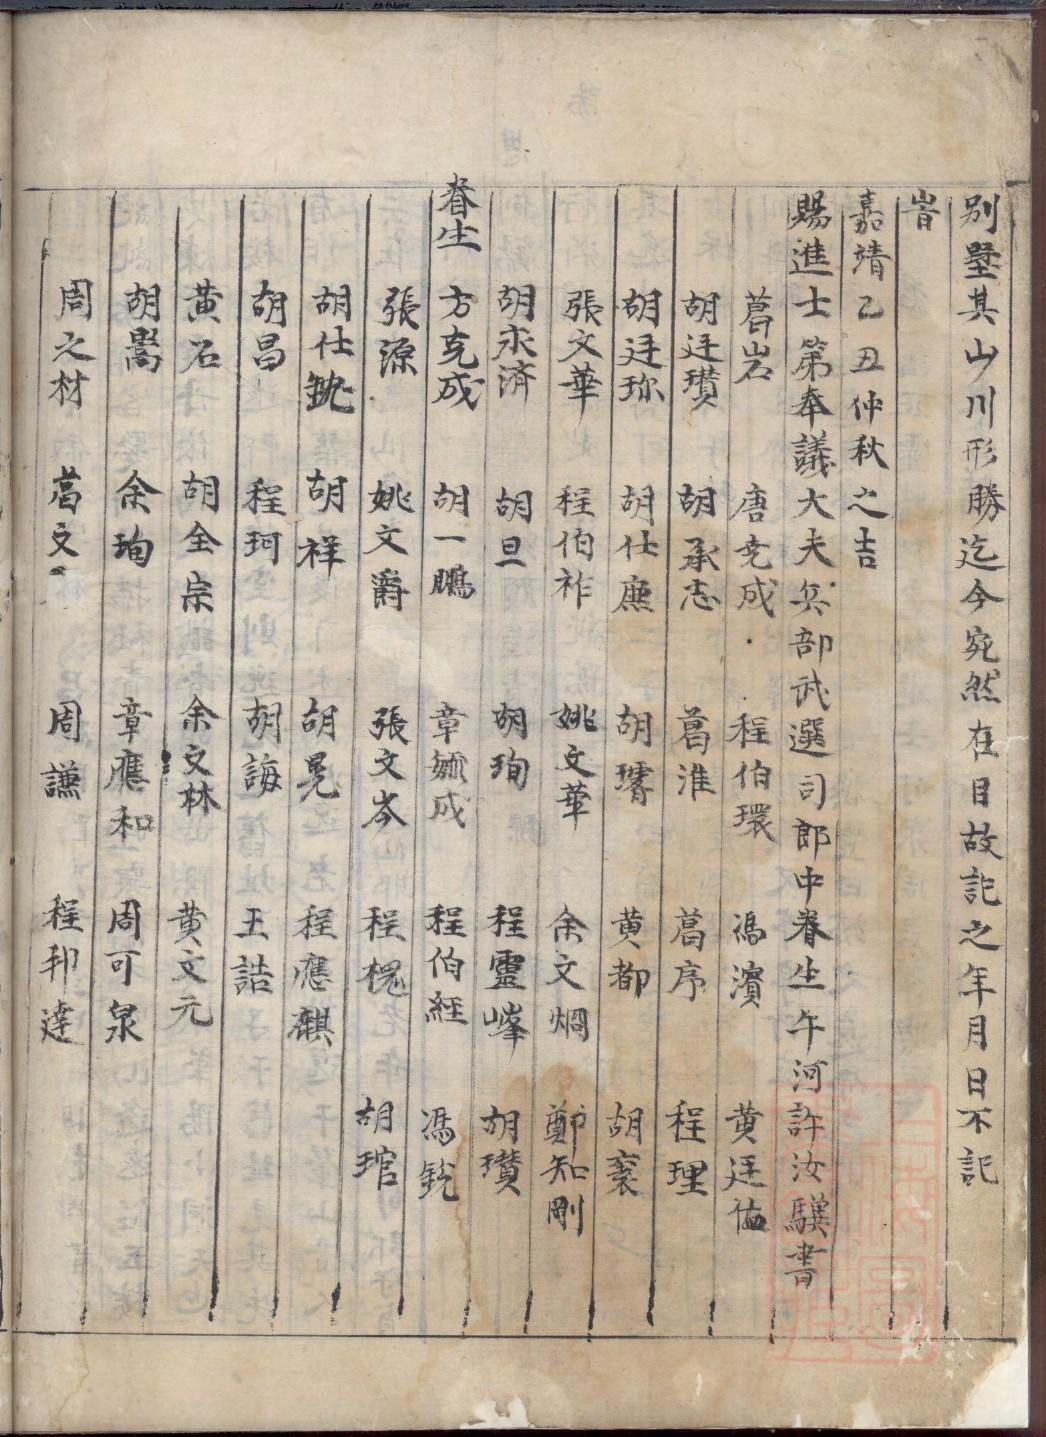 別墅其山川形勝迄今宛然在目故記之年月日不記
旹
嘉靖乙丑仲秋之吉
賜進士第奉議大夫兵部武選司郎中眷生午河許汝驥書
葛岩 唐克成 程伯環 馮濱 黄廷
胡廷瓚 胡承志 葛淮 葛序 程理
胡廷珎 胡仕廉 胡璿 黄都 胡褒
張文華 程伯祚 姚文華 余文烱 鄭知剛
胡永济 胡旦 胡珣 程靈峰 胡瓚
眷生 方克成 胡一鵬 章 成 程伯經 馮銳
張源 姚文爵 張文岑 程槐 胡琯
胡仕銳 胡祥 胡晃 程應麒
胡昌 程珂 胡誨 王誥
黄石 胡全宗 余文林 黄文元
胡嵩 余珣 章應和 周可泉
周之材 葛文 周謙 程邦達